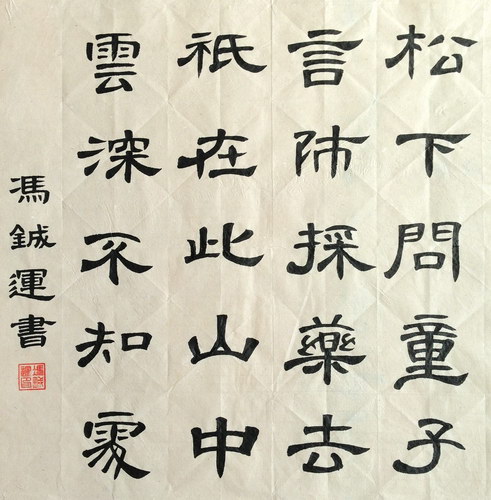 松下問童子
言師採藥去
祇在此山中
雲深不知處
馮鉞運書